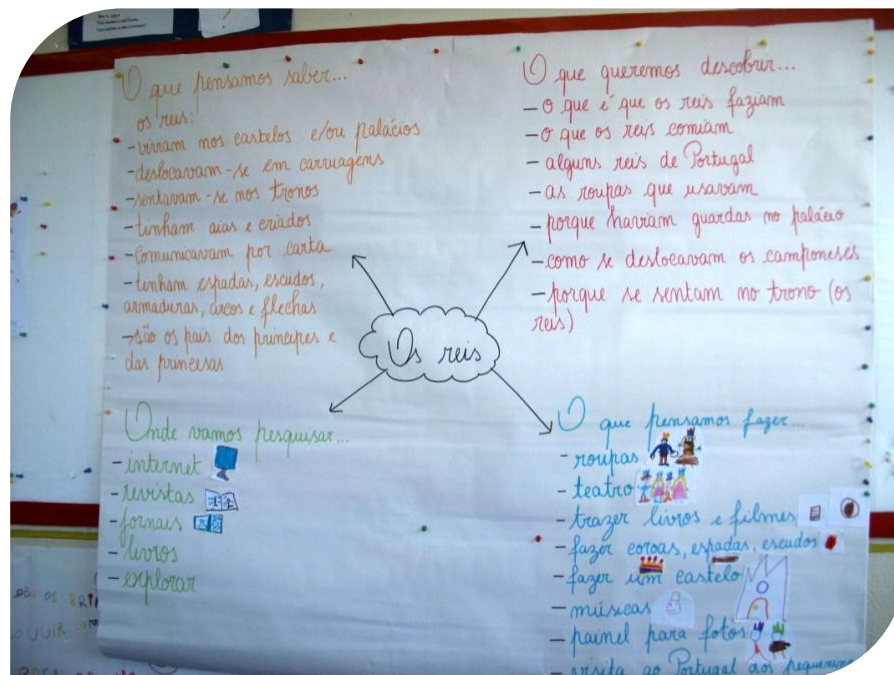 O que pensamos saber...
os reis:
- viviam nos castelos e/ou palácios
- deslocavam-se em carruagens
- sentavam-se nos tronos
- tinham aias e criados
- comunicavam por carta
- tinham espadas, escudos,
armaduras, arcos e flechas
- são os pais dos príncipes e
das princesas
O que queremos descobrir...
- o que é que os reis faziam
- o que os reis comiam
- alguns reis de Portugal
- as roupas que usavam
- porque haviam guardas no palácio
- como se deslocavam os camponeses
- porque se sentam no trono (os
reis)
Os reis
Onde vamos pesquisar...
- internet
- revistas
- jornais
- livros
- explorar
O que pensamos fazer...
- roupas
- teatro
- trazer livros e filmes
- fazer coroas, espadas, escudos
- fazer um castelo
- músicas
- painel para fotos
- visita ao Portugal dos pequeninos